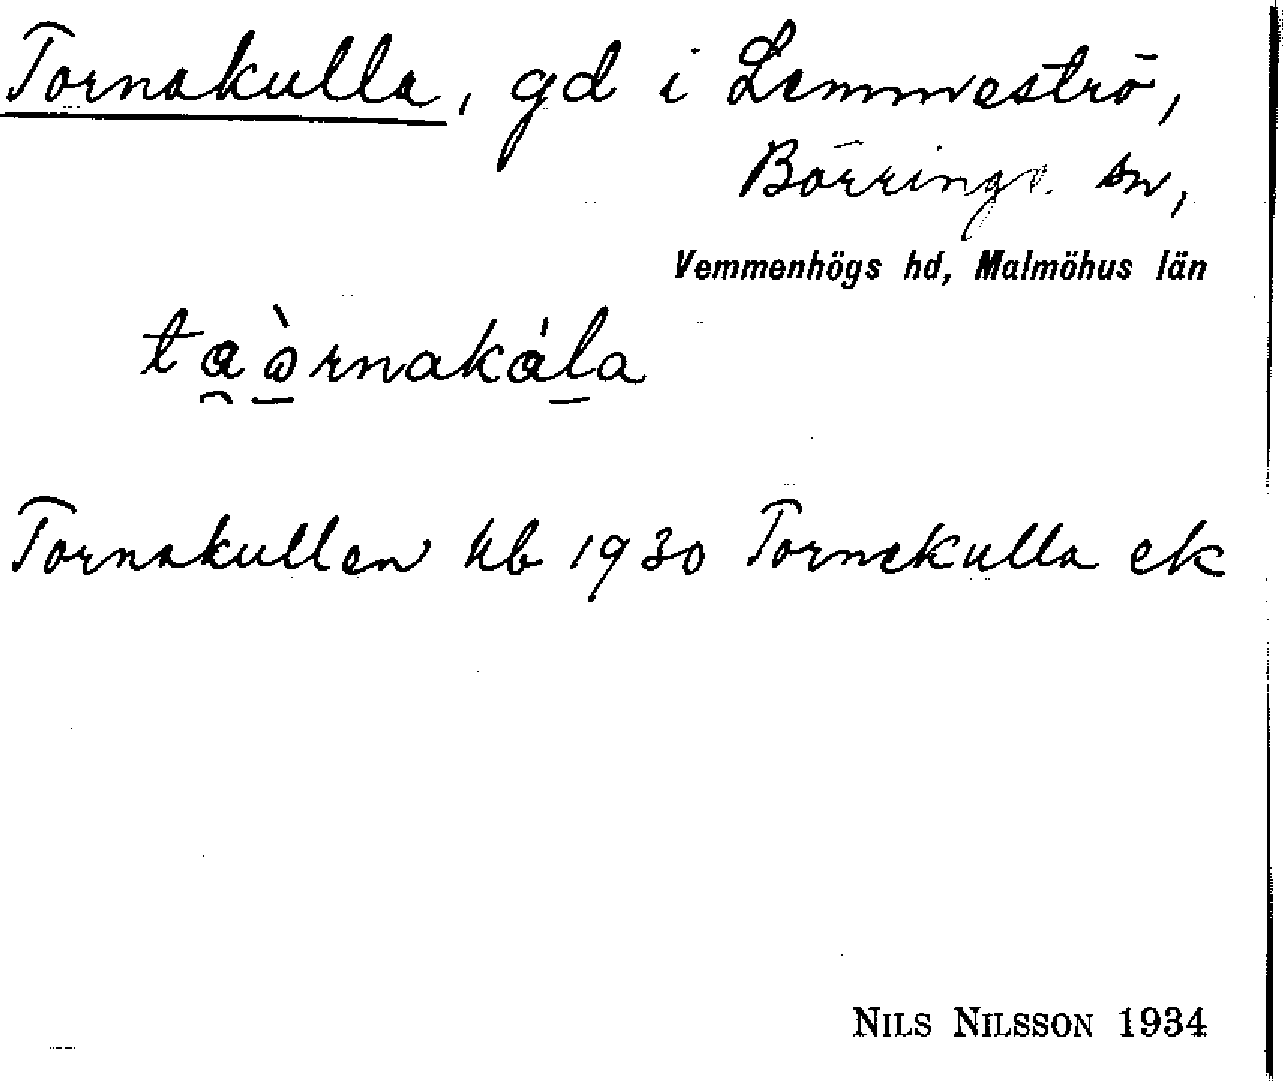 Tornakulla, gd i Lemmeströ,
Börringe sn,
Vemmenhögs hd, Malmöhus län
Tornakullen kb 1930 Tornekulla ek
NILS NILSSON 1934